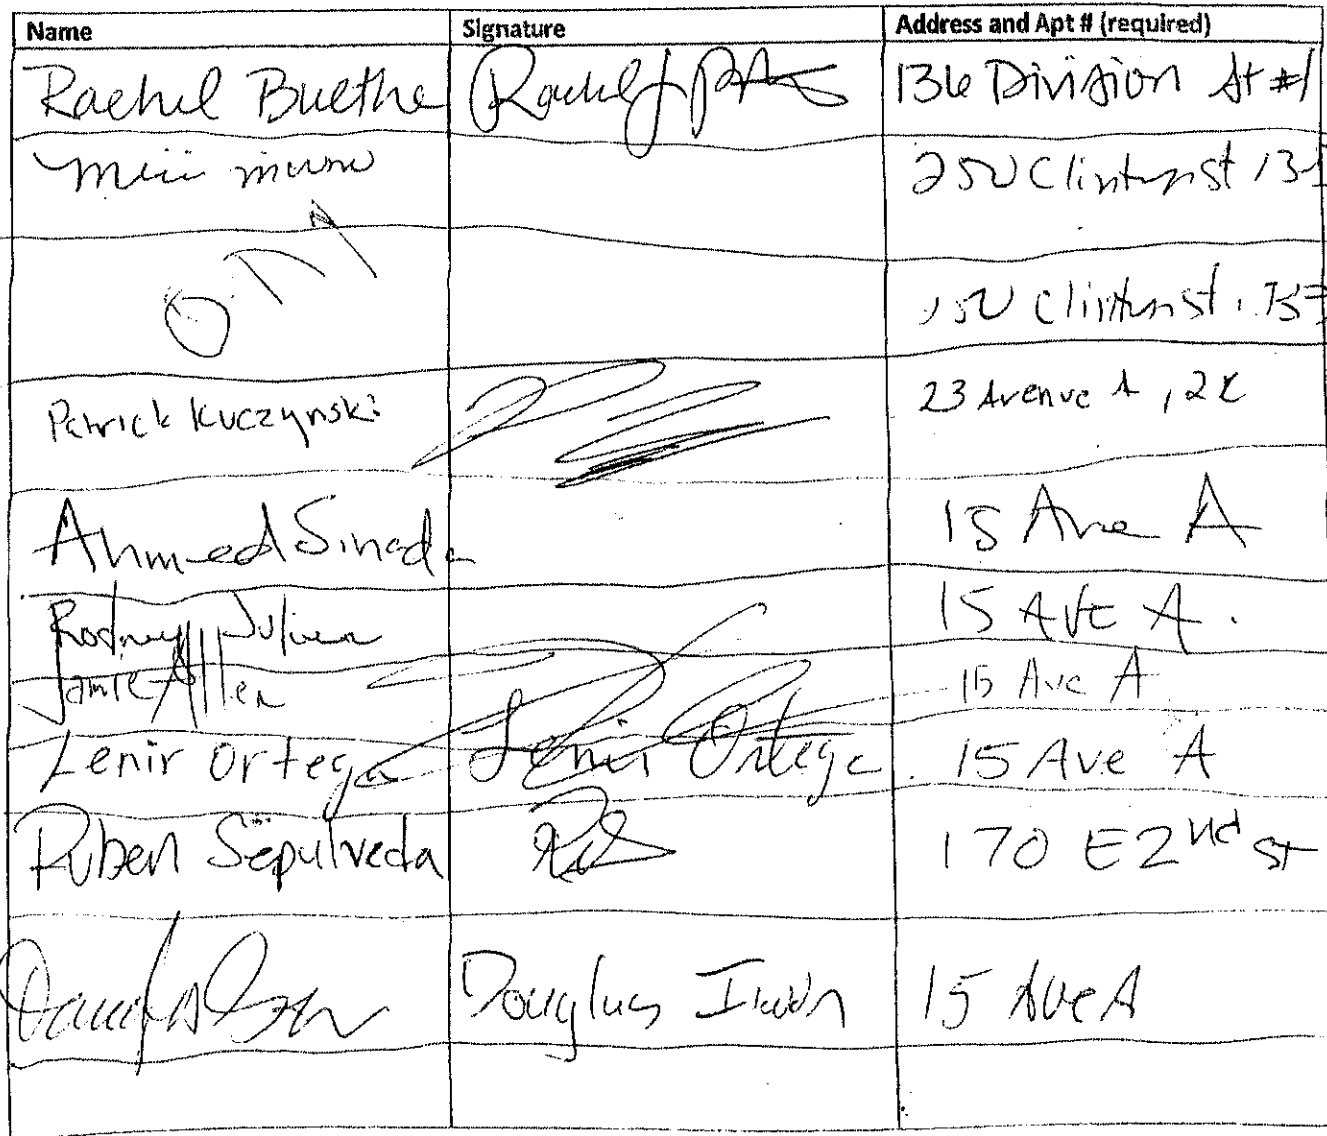 Name Signature Address and Apt # (required)
Rachel Buethe Rachel J 136 Division St #1
250 Clinton st 13
Clinton st.
Patrick Kuczynski 23 Avenue A, 2K
Ahmed Sinada 15 Ave A
Rodney Julien 15 AVE A.
Jamie Allen 15 Ave A
Lenir Ortega Lenir Ortega 15 Ave A
Ruben Sepulveda 170 E 2nd St
Douglas Irwin 15 Ave A